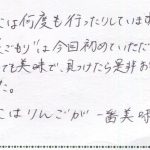 は何度も行ったりしています
ごもり"は今回初めていただ
ても美味で、見つけたら是非お
た。
はりんごが一番美味